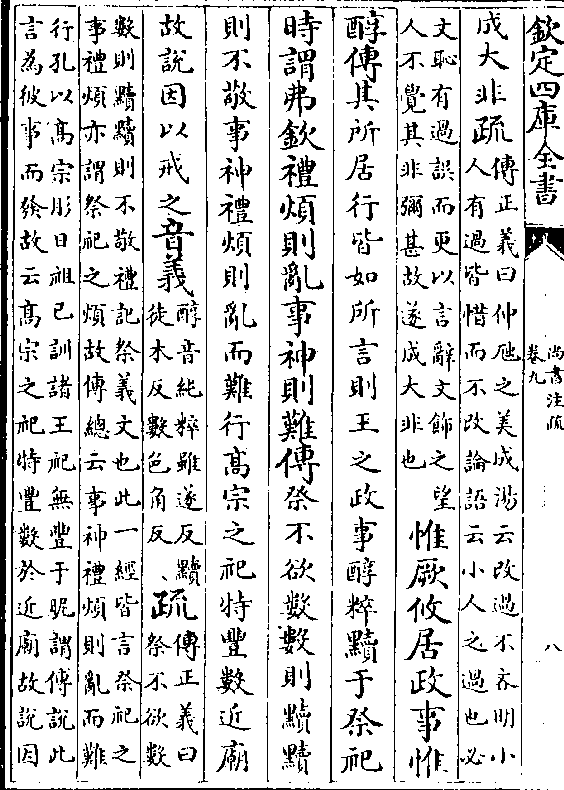 欽定四庫全書
尚書注疏
卷九
八
成大非疏
傳正義曰仲虺之美成湯云改過不吝明小
人有過皆惜而不改論語云小人之過也必
文恥有過誤而更以言辭文飾之望
人不覺其非彌甚故遂成大非也
惟厥攸居政事惟
醇傳其所居行皆如所言則王之政事醇粹黷于祭祀
時謂弗欽禮煩則亂事神則難傳祭不欲數數則黷黷
則不敬事神禮煩則亂而難行高宗之祀特豐數近廟
故說因以戒之音義
醇音純粹雖遂反黷
徒木反數色角反、
疏
傳正義曰
祭不欲數
數則黷黷則不敬禮記祭義文也此一經皆言祭祀之
事禮煩亦謂祭祀之煩故傳總云事神禮煩則亂而難
行孔以高宗肜日祖已訓諸王祀無豐于昵謂傅說此
言為彼事而發故云高宗之祀特豐數於近廟故說因